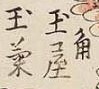 角
玉屋
玉菊